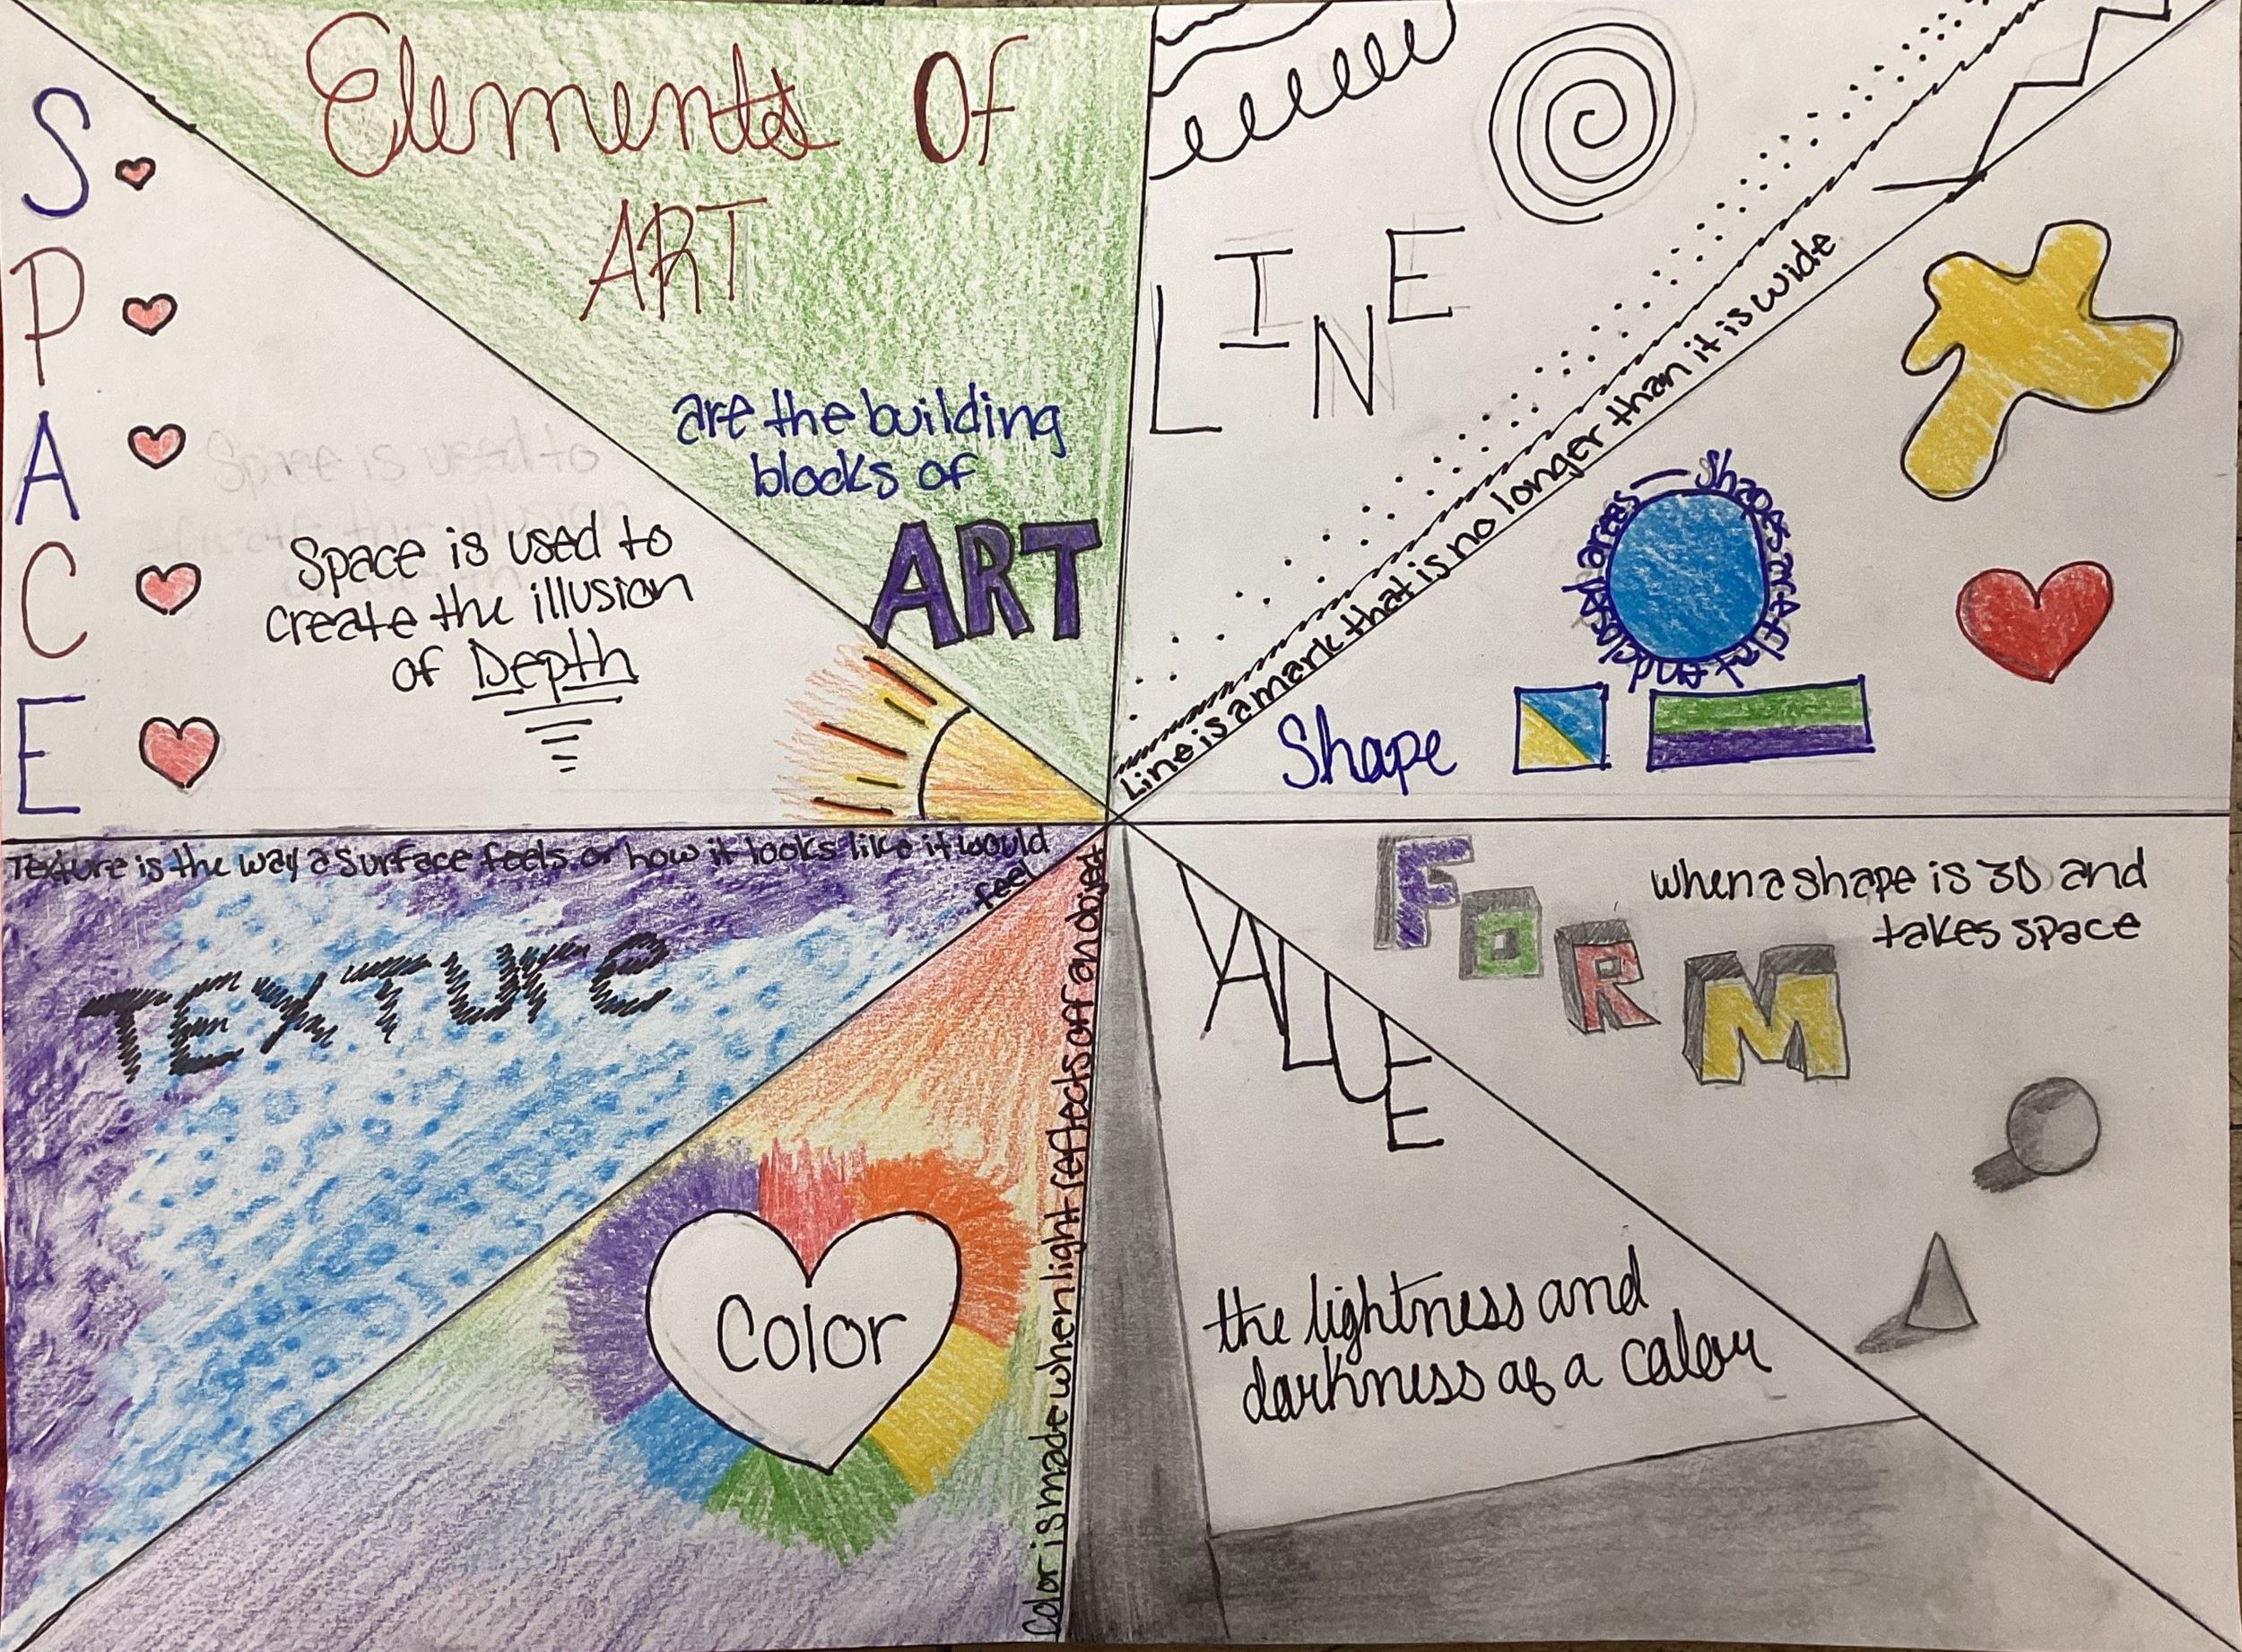 Elements Of
ART
are the building
blocks of
ART
LINE
Line is a mark that is no longer than it is wide
Shapes are flat and enclosed areas
Shape
FORM
when a shape is 3D and
takes space
VALUE
the lightness and
darkness of a calour
Color
Color is made when light reflects off an object
Texture is the way a surface feels or how it looks like it would
feel
TEXTUre
SPACE
Space is used to
create the illusion
of Depth
Space is used to